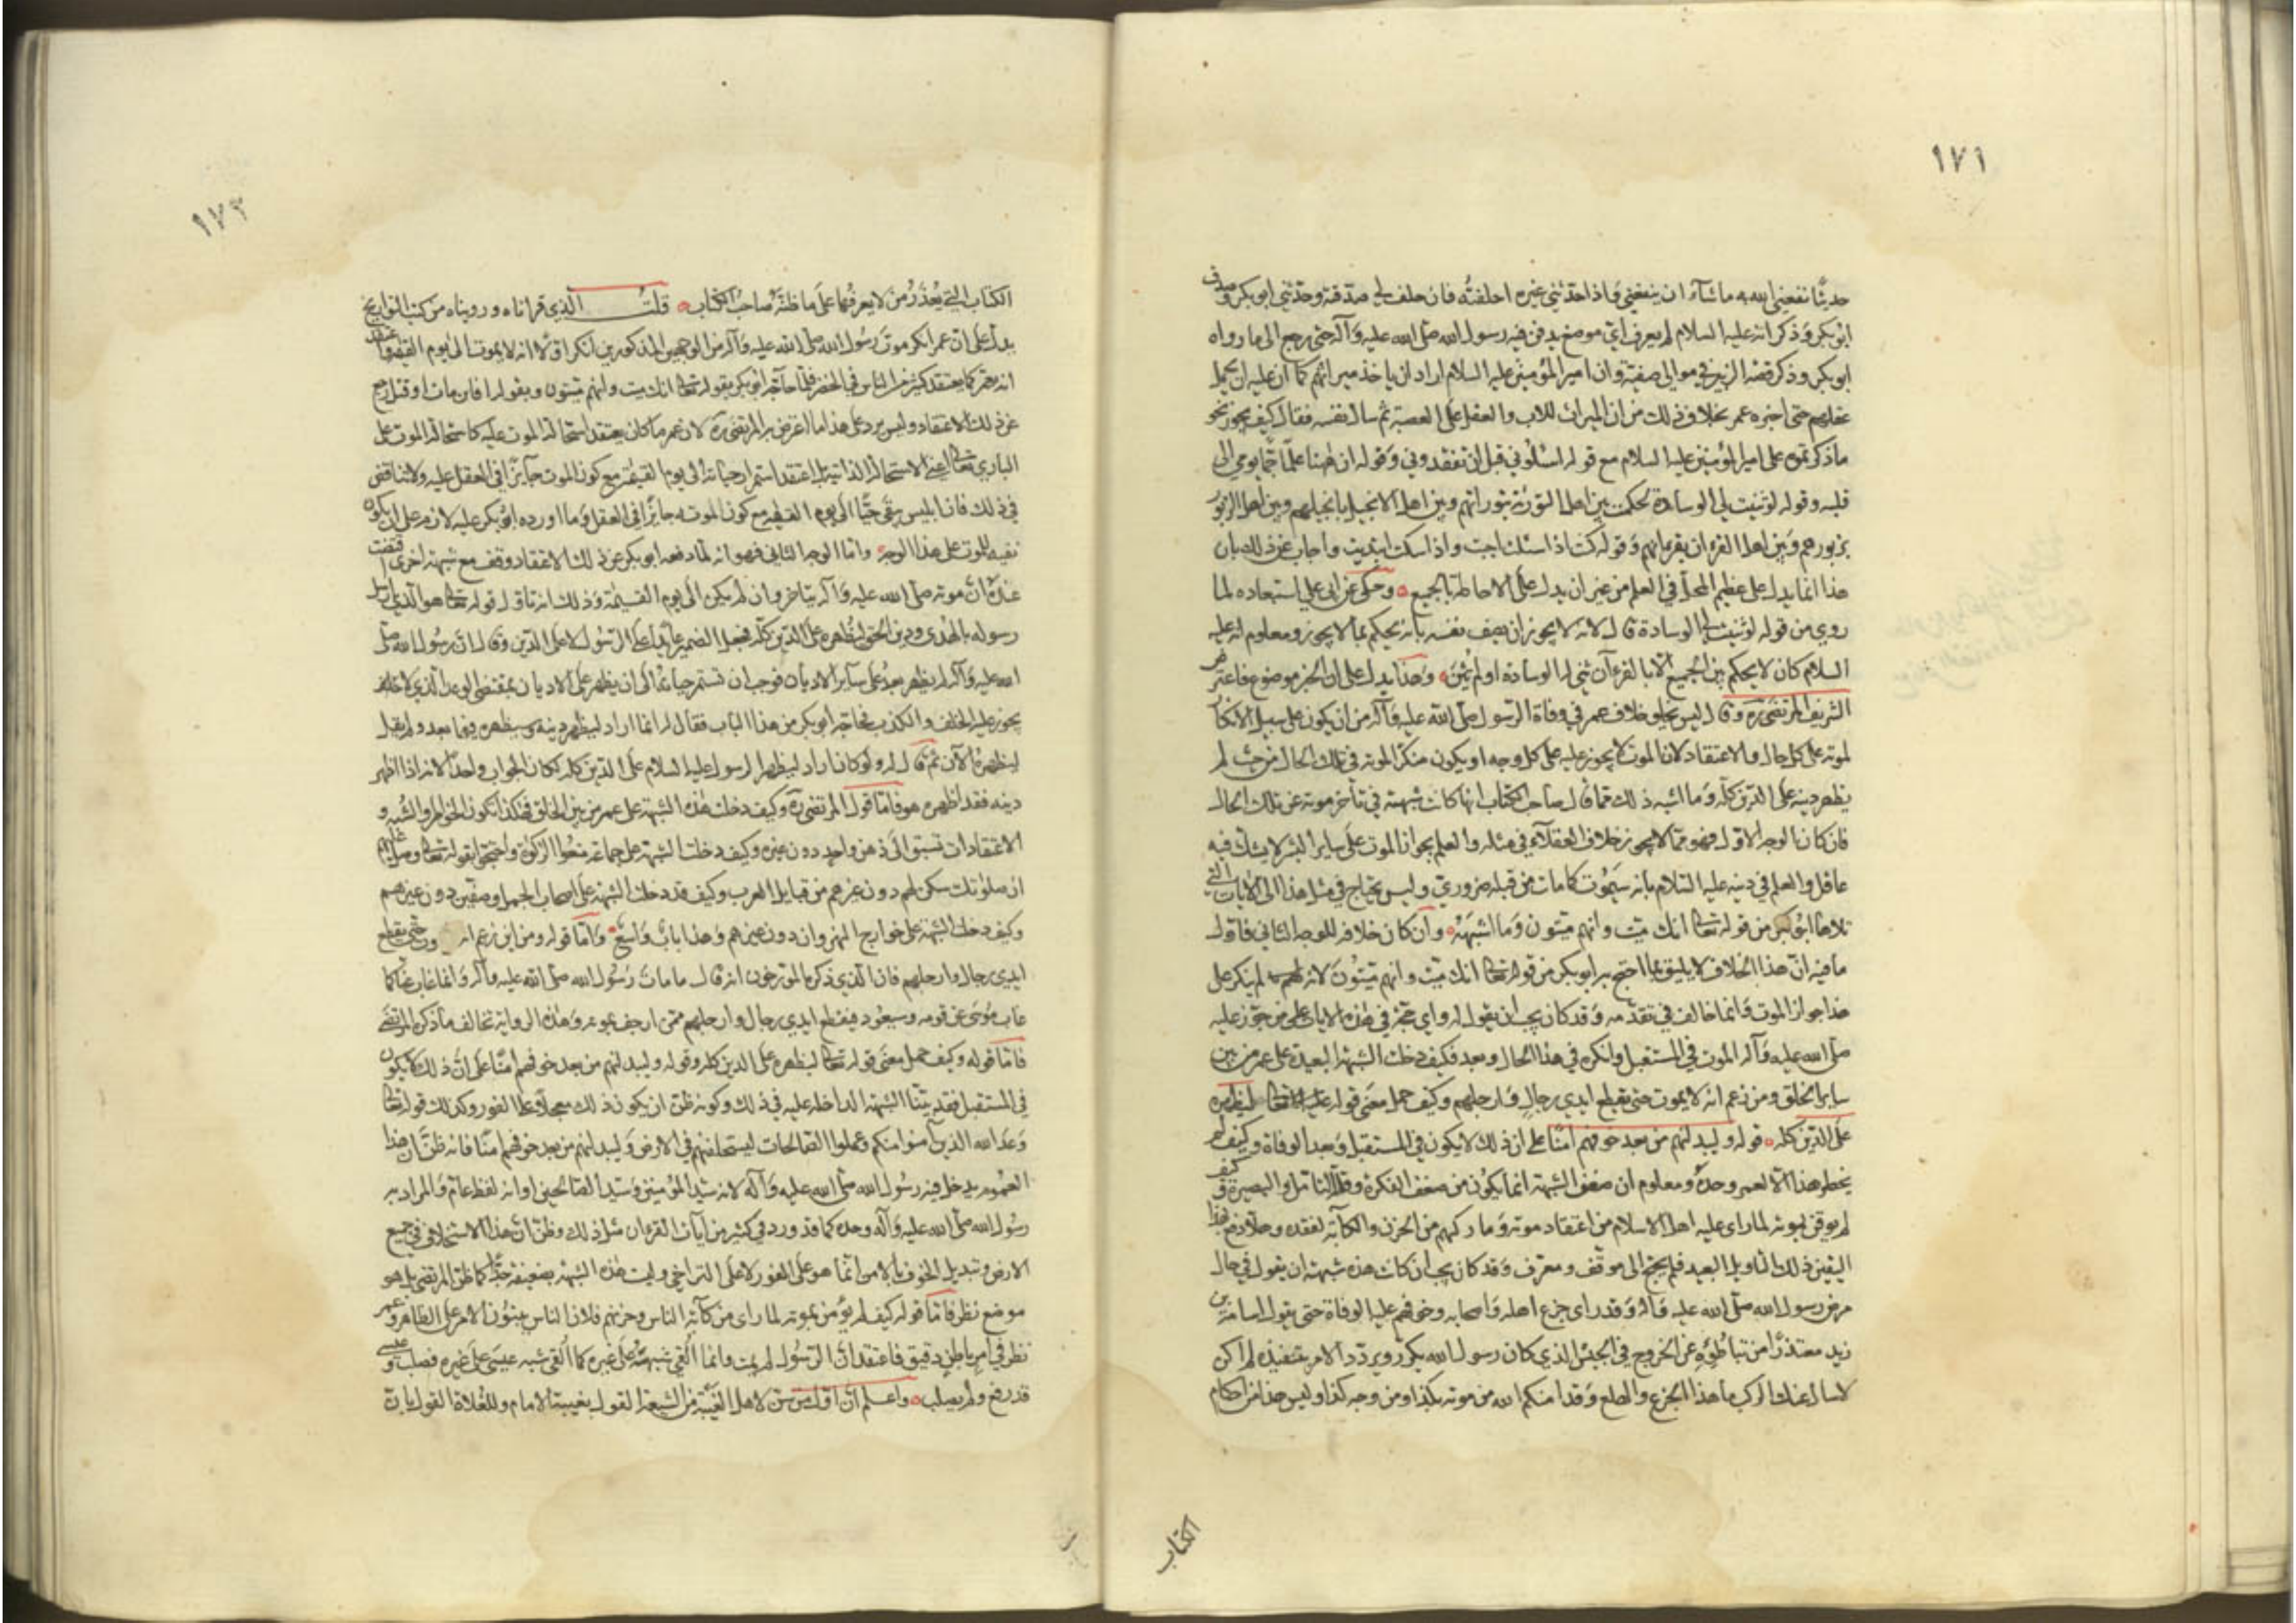 ١٧١
حديثا نفعني الله به ما شاء ان ينفعني واذا حدثني غيره احلفته فان حلف لي صدقته وحدثني ابو بكر وصدق
ابو بكر وذكر انه عليه السلام لم يعرف اي موضع يدفن فيه رسول الله صلى الله عليه وآله حتى رجع الى ما رواه
ابو بكر وذكر قصة الزبير في موالي صفية وان امير المؤمنين عليه السلام اراد ان ياخذ ميراثهم كما ان عليه ان يحمل
عقلهم حتى اخبره عمر بخلاف ذلك من ان الميراث للاب والعقل على العصبة ثم سال نفسه فقال كيف يجوز نحو
ما ذكرتموه على امير المؤمنين عليه السلام مع قوله اسئلوني قبل ان تفقدوني وقوله ان ههنا علما جما يومي الى
قلبه وقوله لو ثنيت لي الوسادة لحكمت بين اهل التورية بتوراتهم وبين اهل الانجيل بانجيلهم وبين اهل الزبور
بزبورهم وبين اهل القرءان بقرءانهم وقوله كنت اذا سئلت اجبت واذا سكت ابتديت واجاب عن ذلك بان
هذا انما يدل على عظيم المحل في العلم من غير ان يدل على الاحاطة بالجميع وحكى عن ابي علي استبعاده لما
روي من قوله لو ثنيت لي الوسادة قال لانه لا يجوز ان يصف نفسه بانه يحكم بما لا يجوز ومعلوم انه عليه
السلام كان لا يحكم بين الجميع الا بالقرءآن ثني له الوسادة او لم تثن وهذا يدل على ان الخبر موضوع فاعترض
الشريف المرتضى ره وقال ليس يخلو خلاف عمر في وفاة الرسول صلى الله عليه وآله من ان يكون على سبيل الانكار
لموته على كل حال والاعتقاد لان الموت لا يجوز عليه على كل وجه او يكون منكرا لموته في تلك الحال من حيث لم
يظهر دينه على الدين كله وما اشبه ذلك مما قال صاحب الكتاب انها كانت شبهته في تأخر موته عن تلك الحال
فان كان الوجه الاول فهو مما لا يجوز خلاف العقلآء في مثله والعلم بجواز الموت على ساير البشر لا يشك فيه
عاقل والعلم في دينه عليه السلام بانه سيموت كما مات من قبله ضروري وليس يحتاج في مثل هذا الى الآيات التي
تلاها ابو بكر من قوله تعالى انك ميت وانهم ميتون وما اشبهه وان كان خلافه للوجه الثاني فاول
ما فيه ان هذا الخلاف لا يليق بما احتج به ابو بكر من قوله تعالى انك ميت وانهم ميتون لانه لم ينكر على
هذا جواز الموت وانما خالف في تقدمه وقد كان يجب ان يقول له واي حجة في هذه الآيات على من جوز عليه
صلى الله عليه وآله الموت في المستقبل وانكره في هذا الحال وبعد فكيف دخلت الشبهة البعيدة على عمر من بين
ساير الخلق ومن زعم انه لا يموت حتى يقطع ايدي رجال وارجلهم وكيف حمل معنى قوله تعالى ليظهره
على الدين كله قوله وليبدلنهم من بعد خوفهم امنا على ان ذلك لا يكون في المستقبل وبعد الوفاة وكيف لم
يخطر هذا الا لعمر وحده ومعلوم ان ضعف الشبهة انما يكون من ضعف الفكرة وقلة التامل والبصيرة وكيف
لم يوقن بموته لما راى عليه اهل الاسلام من اعتقاد موته وما ركبهم من الحزن والكآبة لفقده وهلا دفع بهذا
اليقين ذلك التاويل البعيد فلم يحتج الى موقف ومعرف وقد كان يجب ان كانت هذه شبهته ان يقول في حال
مرض رسول الله صلى الله عليه وآله وقد راى جزع اهله واصحابه وخوفهم عليه الوفاة حتى يقول اسامة بن
زيد معتذرا من تباطؤه عن الخروج في الجيش الذي كان رسول الله يكرر ويردد الامر بتنفيذه لم اكن
لاسال عنك الركب ما هذا الجزع والهلع وقد امنكم الله من موته بكذا ومن وجه كذا وليس هذا من احكام
الكتاب
١٧٣
الكتاب التي يعذر من لا يعرفها على ما ظنه صاحب الكتاب قلت الذي قراناه ورويناه من كتب التواريخ
يدل على ان عمر انكر موت رسول الله صلى الله عليه وآله من الوجهين المذكورين انكر اولا انه لا يموت الى يوم القيمة واعتقد
انه يعمر كما يعتقد كثير من الناس في الخضر فلما حاجه ابو بكر بقوله تعالى انك ميت وانهم ميتون وبقوله افان مات او قتل رجع
عن ذلك الاعتقاد وليس يرد على هذا ما اعترض به المرتضى ره لان عمر ما كان يعتقد استحالة الموت عليه كاستحالة الموت على
الباري تعالى اعني الاستحالة الذاتية بل اعتقد استمرار حياته الى يوم القيمة مع كون الموت جايزا في العقل عليه ولا تناقض
في ذلك فان ابليس يبقى حيا الى يوم القيمة مع كون الموت جايزا في العقل وما اورده ابو بكر عليه لازم على ان يكون
نفيه للموت على هذا الوجه واما الوجه الثاني فهو انه لما دفعه ابو بكر عن ذلك الاعتقاد وقف مع شبهة اخرى اقتضت
عنده ان موته صلى الله عليه وآله يتاخر وان لم يكن الى يوم القيمة وذلك انه تاول قوله تعالى هو الذي ارسل
رسوله بالهدى ودين الحق ليظهره على الدين كله فجعل الضمير عايدا على الرسول لا على الدين وقال ان رسول الله صلى
الله عليه وآله لم يظهر بعد على ساير الاديان فوجب ان تستمر حياته الى ان يظهر على الاديان بمقتضى الوعد الذي لا
يجوز عليه الخلف والكذب فحاجه ابو بكر من هذا الباب فقال له انما اراد ليظهر دينه وسيظهره فيما بعد ولم يقل
ليظهره الآن ثم قال له ولو كان اراد ليظهر الرسول عليه السلام على الدين كله لكان الجواب واحدا لانه اذا اظهر
دينه فقد اظهره هو فاما قول المرتضى ره وكيف دخلت هذه الشبهة على عمر من بين الخلق فهكذا تكون الخواطر والشبه و
الاعتقادات تسبق الى ذهن واحد دون غيره وكيف دخلت الشبهة على جماعة منعوا الزكوة واحتجوا بقوله تعالى وصل عليهم
ان صلوتك سكن لهم دون غيرهم من قبايل العرب وكيف قد دخلت الشبهة على اصحاب الجمل وصفين دون غيرهم
وكيف دخلت الشبهة على خوارج النهروان دون غيرهم وهذا باب واسع واما قوله ومن اين زعم انه حتى يقطع
ايدي رجال وارجلهم فان الذي ذكره المؤرخون انه قال ما مات رسول الله صلى الله عليه وآله وانما غاب عنا كما
غاب موسى عن قومه وسيعود فيقطع ايدي رجال وارجلهم ممن ارجف بموته وهذه الرواية تخالف ما ذكره المرتضى
فاما قوله وكيف حمل معنى قوله تعالى ليظهره على الدين كله وقوله وليبدلنهم من بعد خوفهم امنا على ان ذلك لا يكون
في المستقبل فقد بينا الشبهة الداخلة عليه في ذلك وكونه ظن ان يكون ذلك معجلا على الفور وكذلك قوله تعالى
وعد الله الذين آمنوا منكم وعملوا الصالحات ليستخلفنهم في الارض وليبدلنهم من بعد خوفهم امنا فانه ظن ان هذا
العموم يدخل فيه رسول الله صلى الله عليه وآله لانه سيد المؤمنين وسيد الصالحين او انه لفظ عام والمراد به
رسول الله صلى الله عليه وآله وحده كما قد ورد في كثير من آيات القرءان مثل ذلك وظن ان هذا الاستخلاف في جميع
الارض وتبديل الخوف بالامن انما هو على الفور لا على التراخي وليست هذه الشبهة بضعيفة جدا كما ظن المرتضى بل هو
موضع نظر فاما قوله كيف لم يؤمن بموته لما راى من كآبة الناس وحزنهم فلان الناس يبنون الامر على الظاهر وعمر
نظر في امر باطن دقيق فاعتقد ان الرسول لم يمت وانما القي شبهه على غيره كما القي شبه عيسى على غيره فصلب وعيسى
قد رفع ولم يصلب واعلم ان اول من سن لاهل الغيبة من الشيعة القول بغيبة الامام وللغلاة القول بان